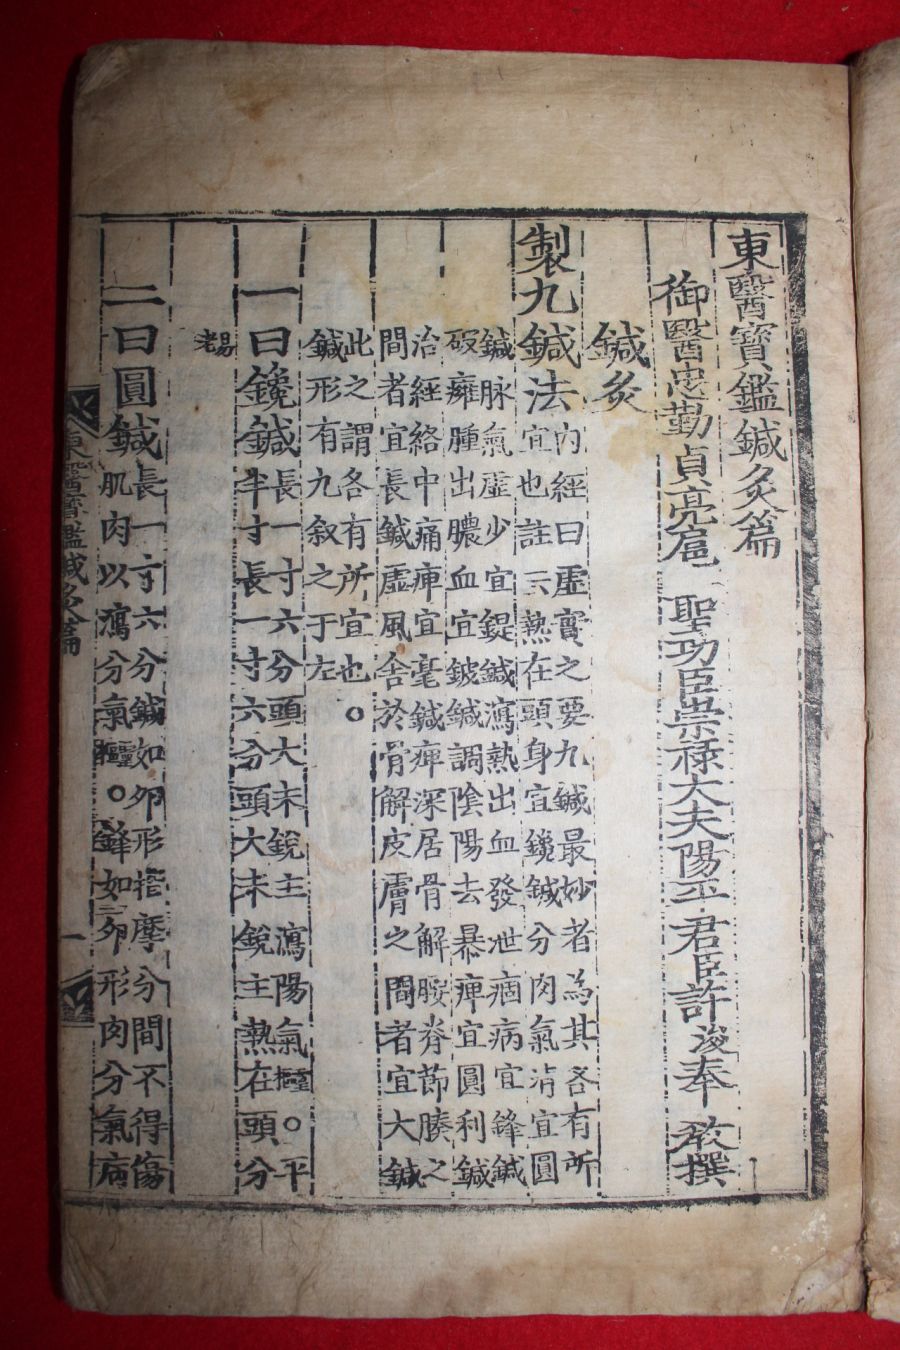 東醫寶鑑鍼灸篇
御醫忠勤貞亮扈 聖功臣崇祿大夫陽平君臣許浚奉 敎撰
鍼灸
製九鍼法
內經曰虛實之要九鍼最妙者爲其各有所
宜也註云熱在頭身宜鑱鍼分肉氣滿宜圓
鍼脉氣虛少宜鍉鍼瀉熱出血發泄痼病宜鋒鍼
破癰腫出膿血宜鈹鍼調陰陽去暴痺宜圓利鍼
治經絡中痛痺宜毫鍼痺深居骨解腰脊節腠之
間者宜長鍼虛風舍於骨解皮膚之間者宜大鍼
此之謂各有所宜也○
鍼形有九叙之于左
一曰鑱鍼
長一寸六分頭大末銳主瀉陽氣靈樞○平
半寸長一寸六分頭大末銳主熱在頭分
易老
二曰圓鍼
長一寸六分鍼如卵形揩摩分間不得傷
肌肉以瀉分氣靈樞○鋒如卵形肉分氣病
東醫寶鑑鍼灸篇 一